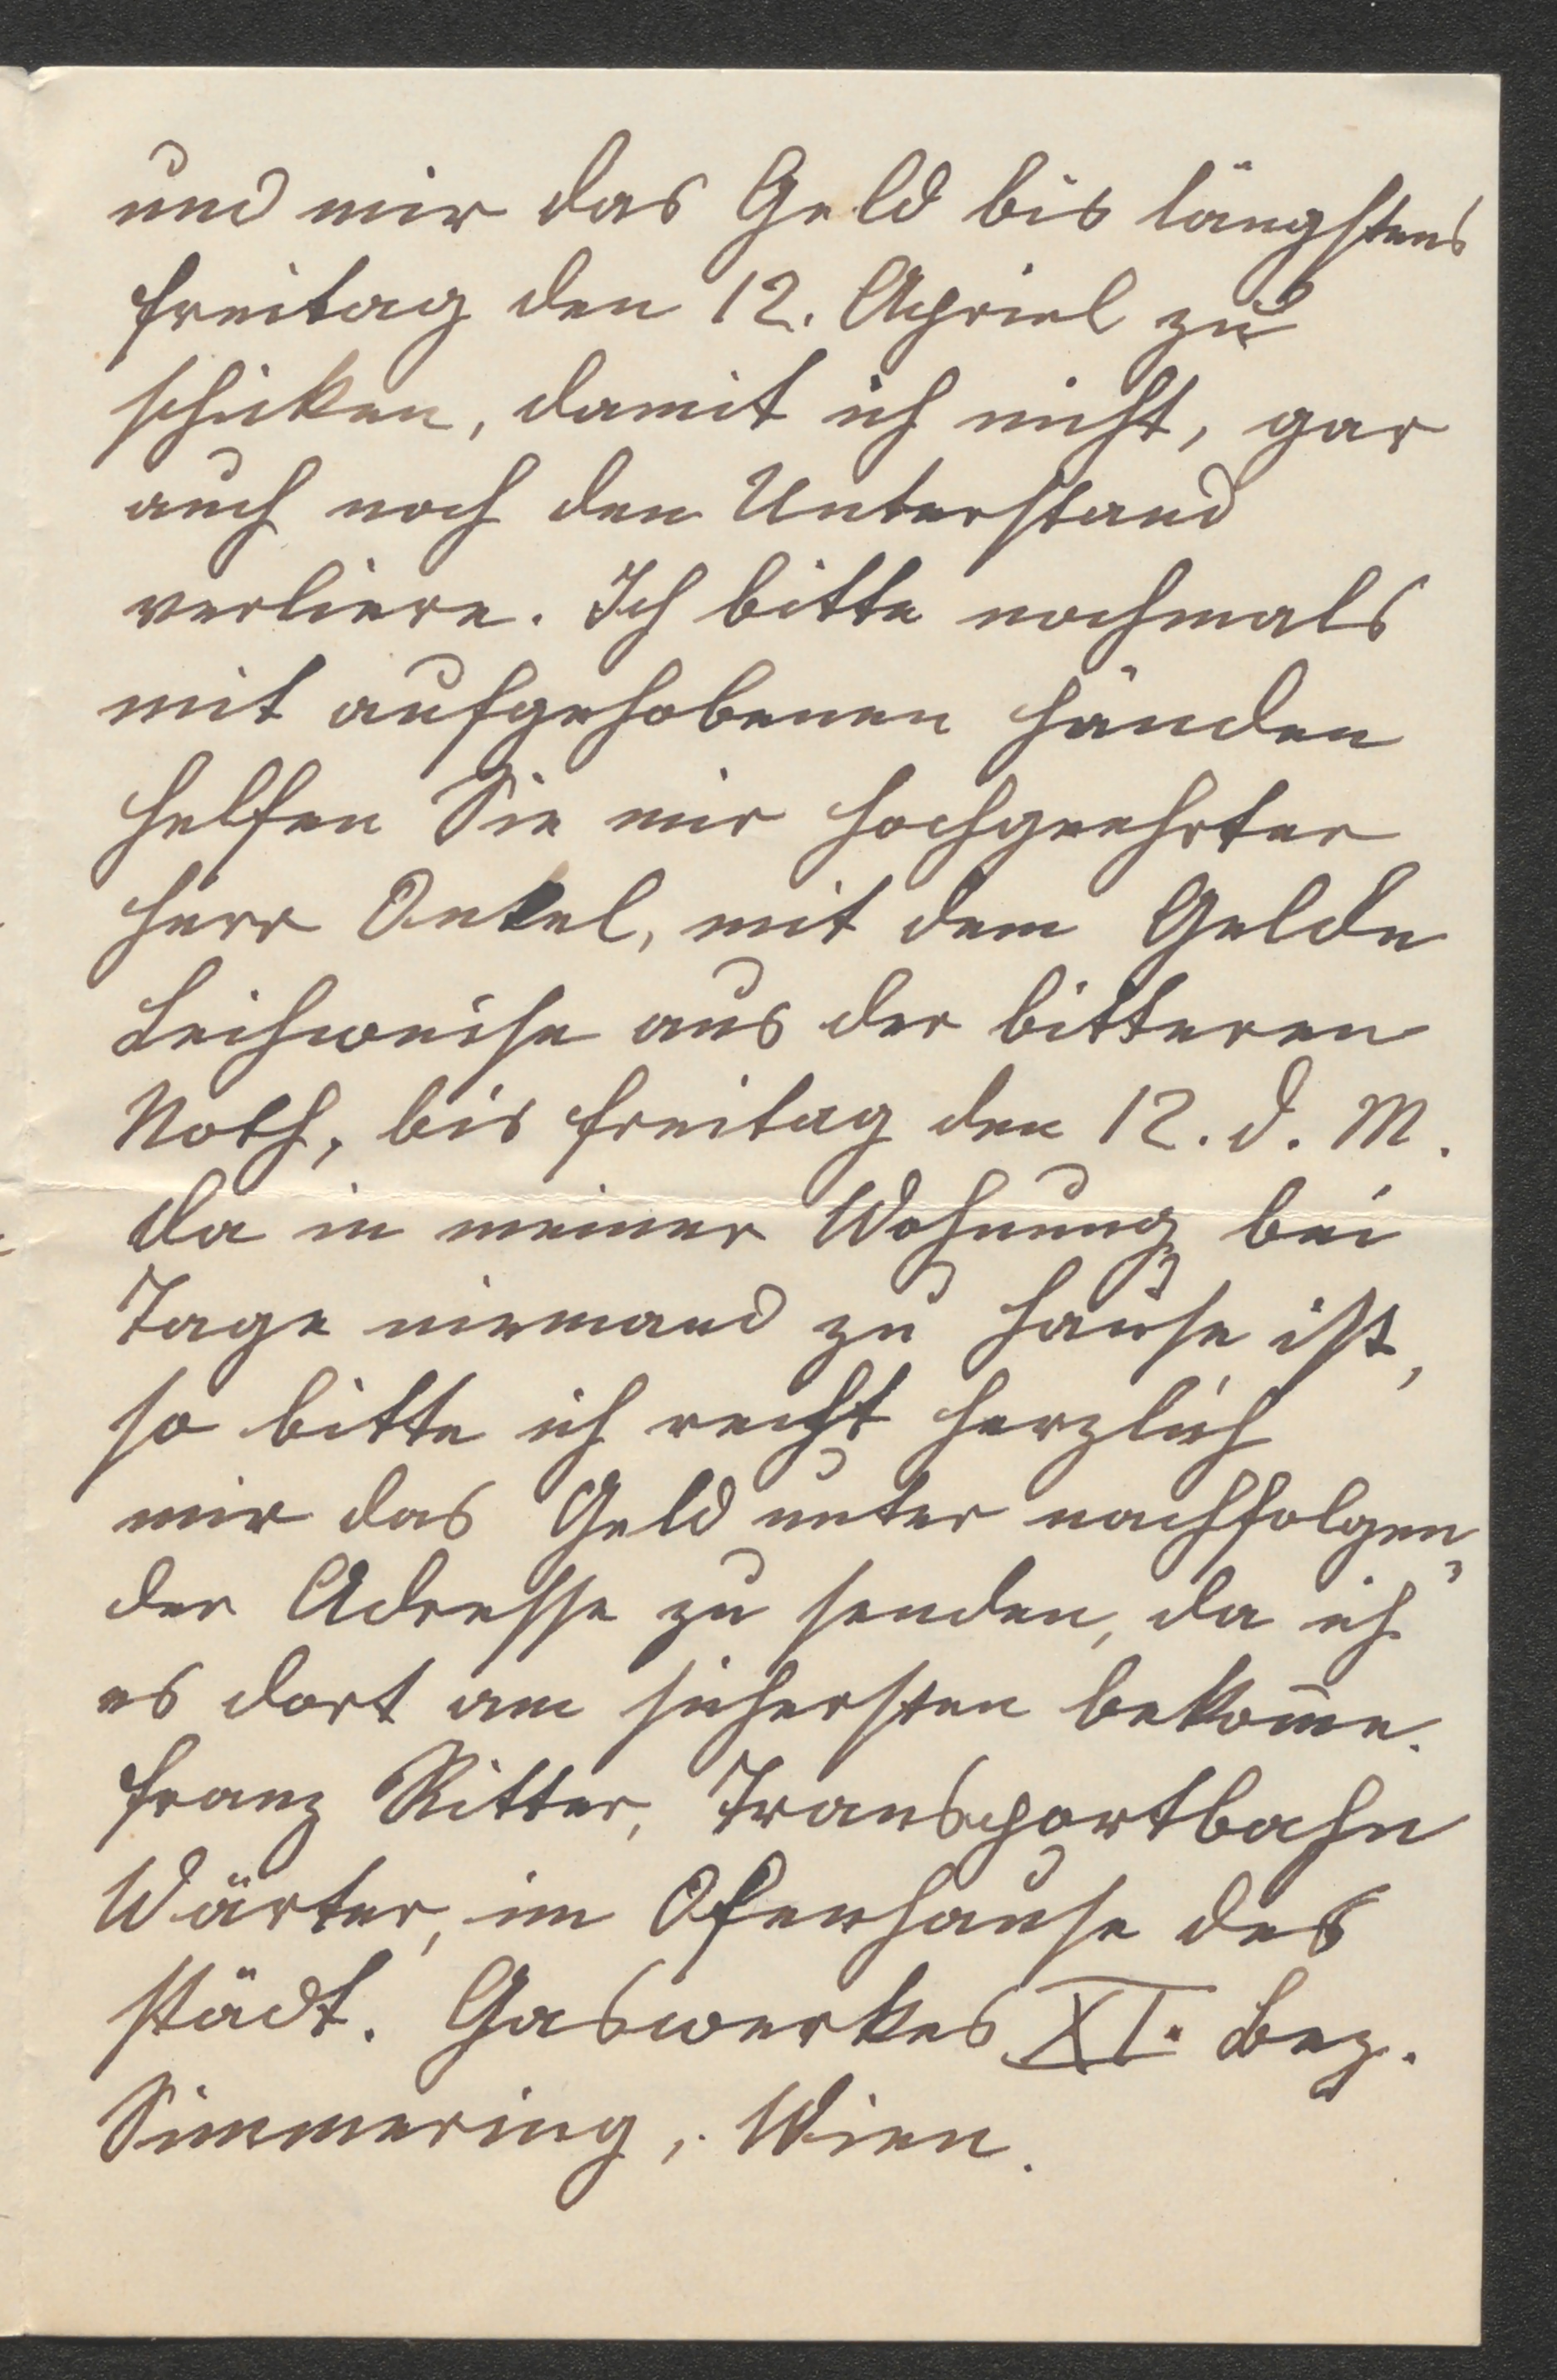 und mir das Geld bis längstens
Freitag den 12. Apriel zu
schicken, damit ich nicht, gar
auch noch den Unterstand
verliere. Ich bitte nochmals
mit aufgehobenen Händen
helfen Sie mir hochgeehrter
Herr Onkel, mit dem Gelde
Leihweise aus der bitteren
Noth, bis Freitag den 12. d. M.
Da in meiner Wohnung bei
Tage niemand zu Hause ist,
so bitte ich recht herzlich
mir das Geld unter nachfolgen„
der Adresse zu senden, da ich
es dort am sichersten bekom̄e.
Franz Ritter, Transportbahn
Wärter, im Ofenhause des
städt. Gaswerkes XI. Bez.
Simmering, Wien.